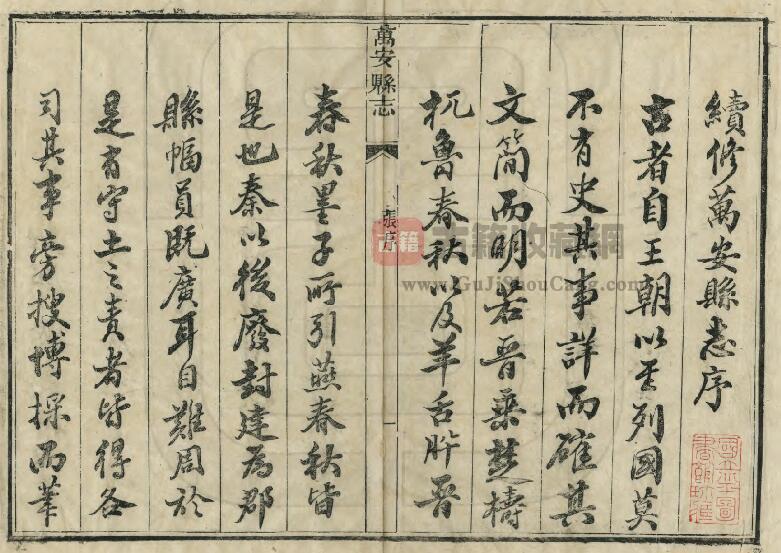 續修萬安縣志序
古者自王朝以至列國莫
不有史其事詳而確其
文簡而明若晉乘楚檮
杌魯春秋以及羊舌肸晉
萬安縣志
張序
一
春秋墨子所引燕春秋皆
是也秦以後廢封建為郡
縣幅員既廣耳目難周於
是有守土之責者皆得各
司其事旁搜博採而筆
古籍
古籍收藏網
www.GuJiShouCang.com